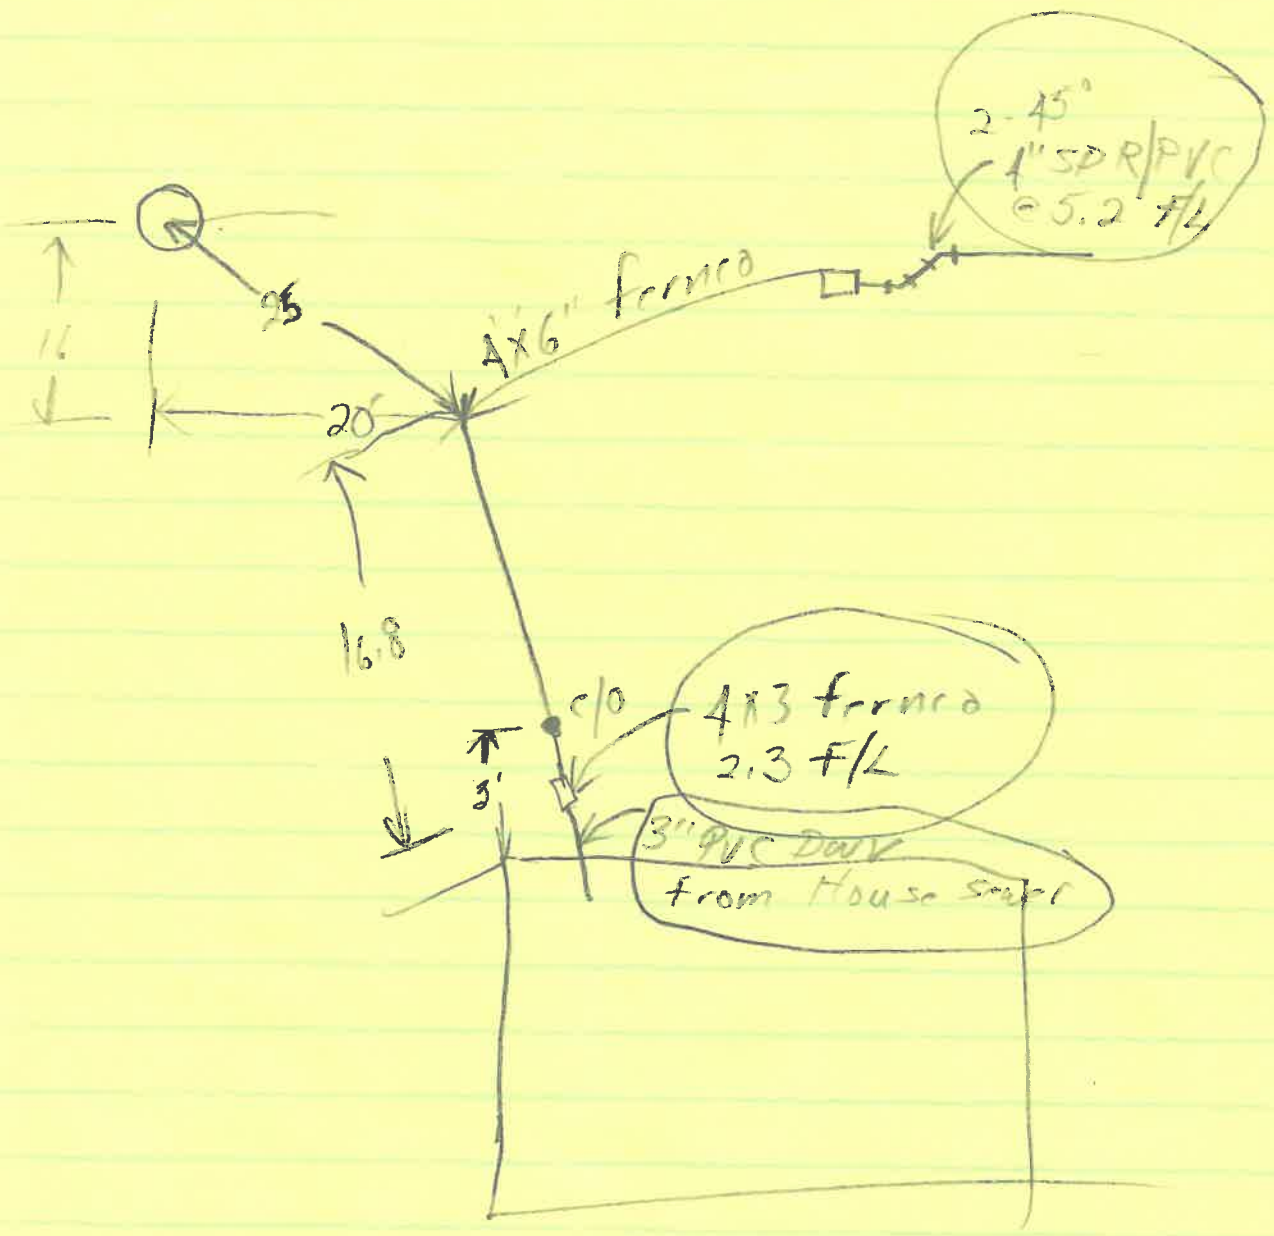 2-45°
4" SDR/PVC
@ 5.2 F/L
4"x6" fernco
25
16
20'
16.8
c/o
4x3 fernco
2.3 F/L
3'
3" PVC DWV
from House sewer